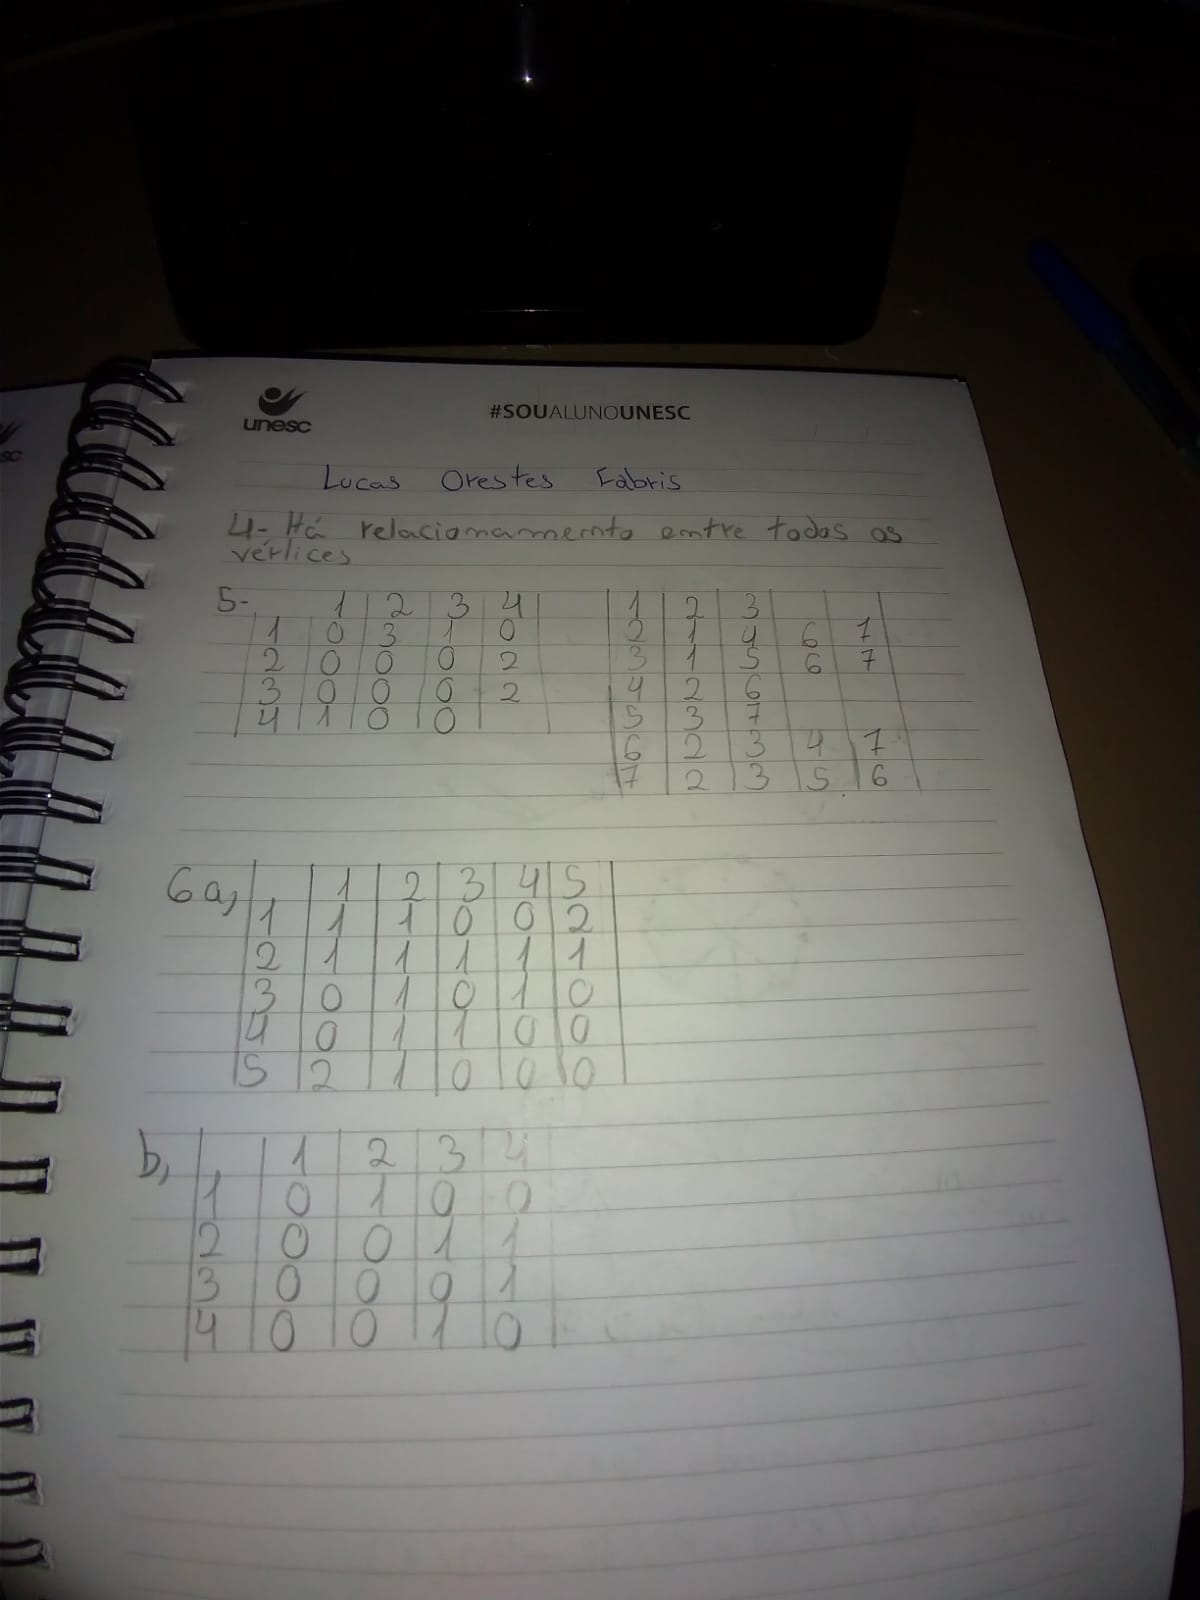 unesc
#SOUALUNOUNESC
Lucas Orestes Fabris
4- Há relacionamemnto emtre todos os
vértices
5- 1 2 3 4
1 0 3 1 0
2 0 0 0 2
3 0 0 0 2
4 1 0 0
1 2 3
2 1 4 6 7
3 1 5 6 7
4 2 6
5 3 7
6 2 3 4 7
7 2 3 5 6
6 a, 1 2 3 4 5
1 1 1 0 0 2
2 1 1 1 1 1
3 0 1 0 1 0
4 0 1 1 0 0
5 2 1 0 0 0
b, 1 2 3 4
1 0 1 0 0
2 0 0 1 1
3 0 0 0 1
4 0 0 1 0